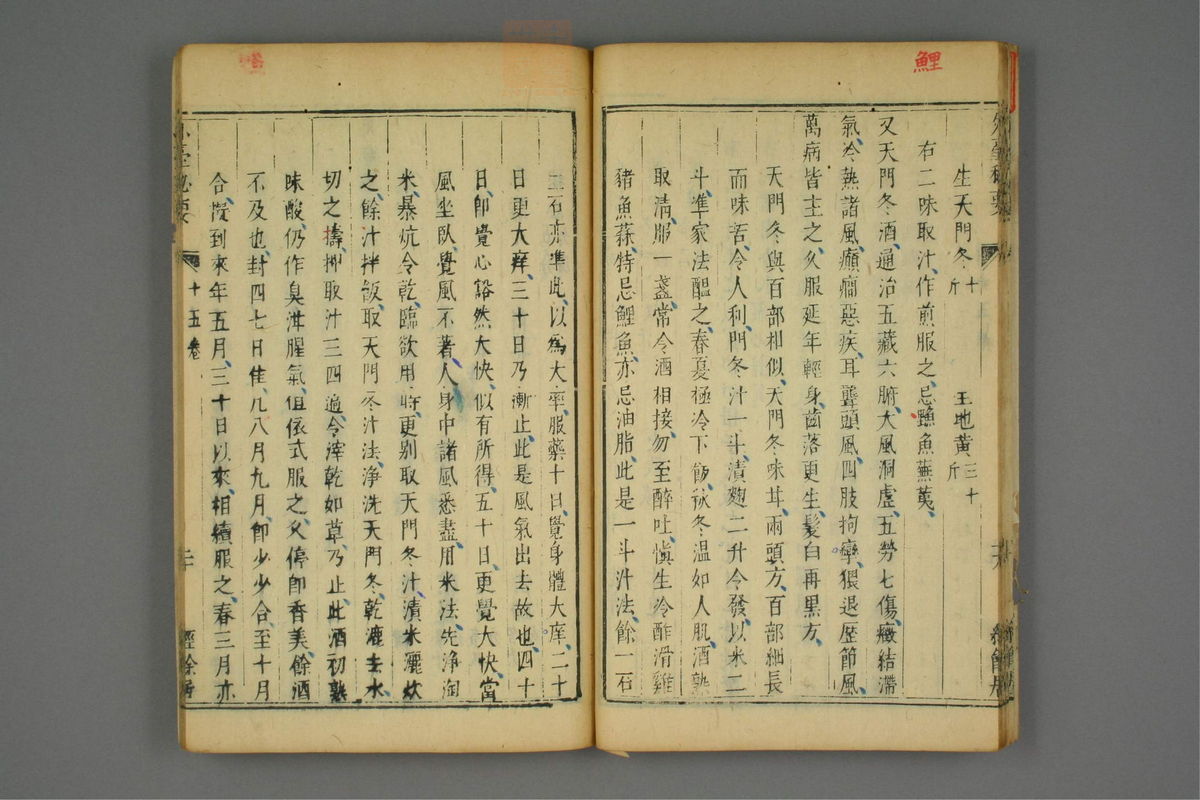 鯉
外臺祕要
生天門冬十斤　生地黃三十斤
右二味取汁、作煎服之、忌鯉魚蕪荑、
又天門冬酒、通治五藏六腑、大風洞虛、五勞七傷、癥結滯
氣、冷熱諸風、癲癇惡疾、耳聾頭風、四肢拘攣、猥退歷節風、
萬病皆主之、久服延年輕身、齒落更生、髮白再黑方、
天門冬與百部相似、天門冬味甘、兩頭方、百部細長
而味苦、令人利、門冬汁一斗、漬麴二升令發、以米二
斗、準家法醞之、春夏極冷下飯、秋冬溫如人肌、酒熟
取清、服一盞、常令酒相接、勿至醉吐、愼生冷酢滑雞
豬魚蒜、特忌鯉魚、亦忌油脂、此是一斗汁法、餘一石
二石亦準此、以爲大率、服藥十日、覺身體大痒、二十
日更大痒、三十日乃漸止、此是風氣出去故也、四十
日、卽覺心豁然大快、似有所得、五十日、更覺大快、當
風坐臥、覺風不著人、身中諸風悉盡、用米法、先淨淘
米、暴炕令乾、臨欲用時、更別取天門冬汁漬米、灑炊
之、餘汁拌飯、取天門冬汁法、淨洗天門冬、乾漉去水、
切之擣、押取汁三四遍、令滓乾如草、乃止、此酒初熟
味酸、仍作臭泔腥氣、但依式服之、久停卽香美、餘酒
不及也、封四七日佳、凡八月九月、卽少少合、至十月
合、擬到來年五月、三十日以來、相續服之、春三月亦
外臺祕要
十五卷
二十
經餘居